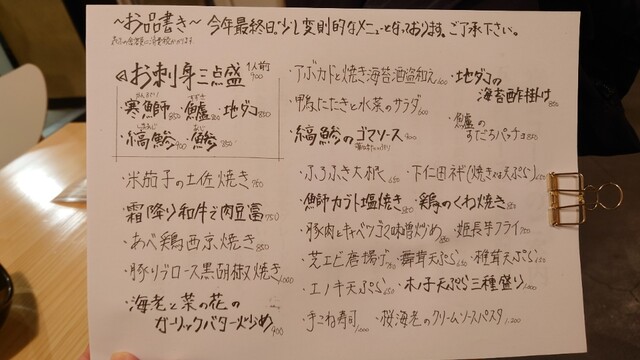 ～お品書き～ 今年最終日。少し変則的なメニューとなっております。ご了承下さい。
お刺身三点盛 1人前 900
・寒鰤 850 ・鱸 ・地ダコ 850
・縞鯵 900 ・鯵
・米茄子の土佐焼き 750
・霜降り和牛で肉豆富 950
・あべ鶏西京焼き 850
・豚リブロース黒胡椒焼き 1,000
・海老と菜の花の
ガーリックバター炒め 900
・アボカドと焼き海苔酒盗和え
・鴨たたきと水菜のサラダ
・縞鯵のゴマソース 900
・地ダコの
海苔酢掛け 850
・鱸の
すだちパッチョ 850
・ふろふき大根 650 ・下仁田ネギ(焼き又は天ぷら)
・鰤カブト塩焼き ・鶏のくわ焼き
・豚肉とキャベツゴマ味噌炒め ・姫長芋フライ 700
・芝エビ唐揚げ ・舞茸天ぷら 650 ・椎茸天ぷら 650
・エノキ天ぷら ・木ノ子天ぷら三種盛り 1,000
・手こね寿司 1,000 ・桜海老のクリームソースパスタ 1,200